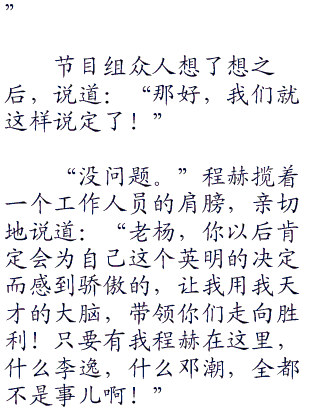 ”
节目组众人想了想之
后，说道：“那好，我们就
这样说定了！”
“没问题。”程赫揽着
一个工作人员的肩膀，亲切
地说道：“老杨，你以后肯
定会为自己这个英明的决定
而感到骄傲的，让我用我天
才的大脑，带领你们走向胜
利！只要有我程赫在这里，
什么李逸，什么邓潮，全都
不是事儿啊！”